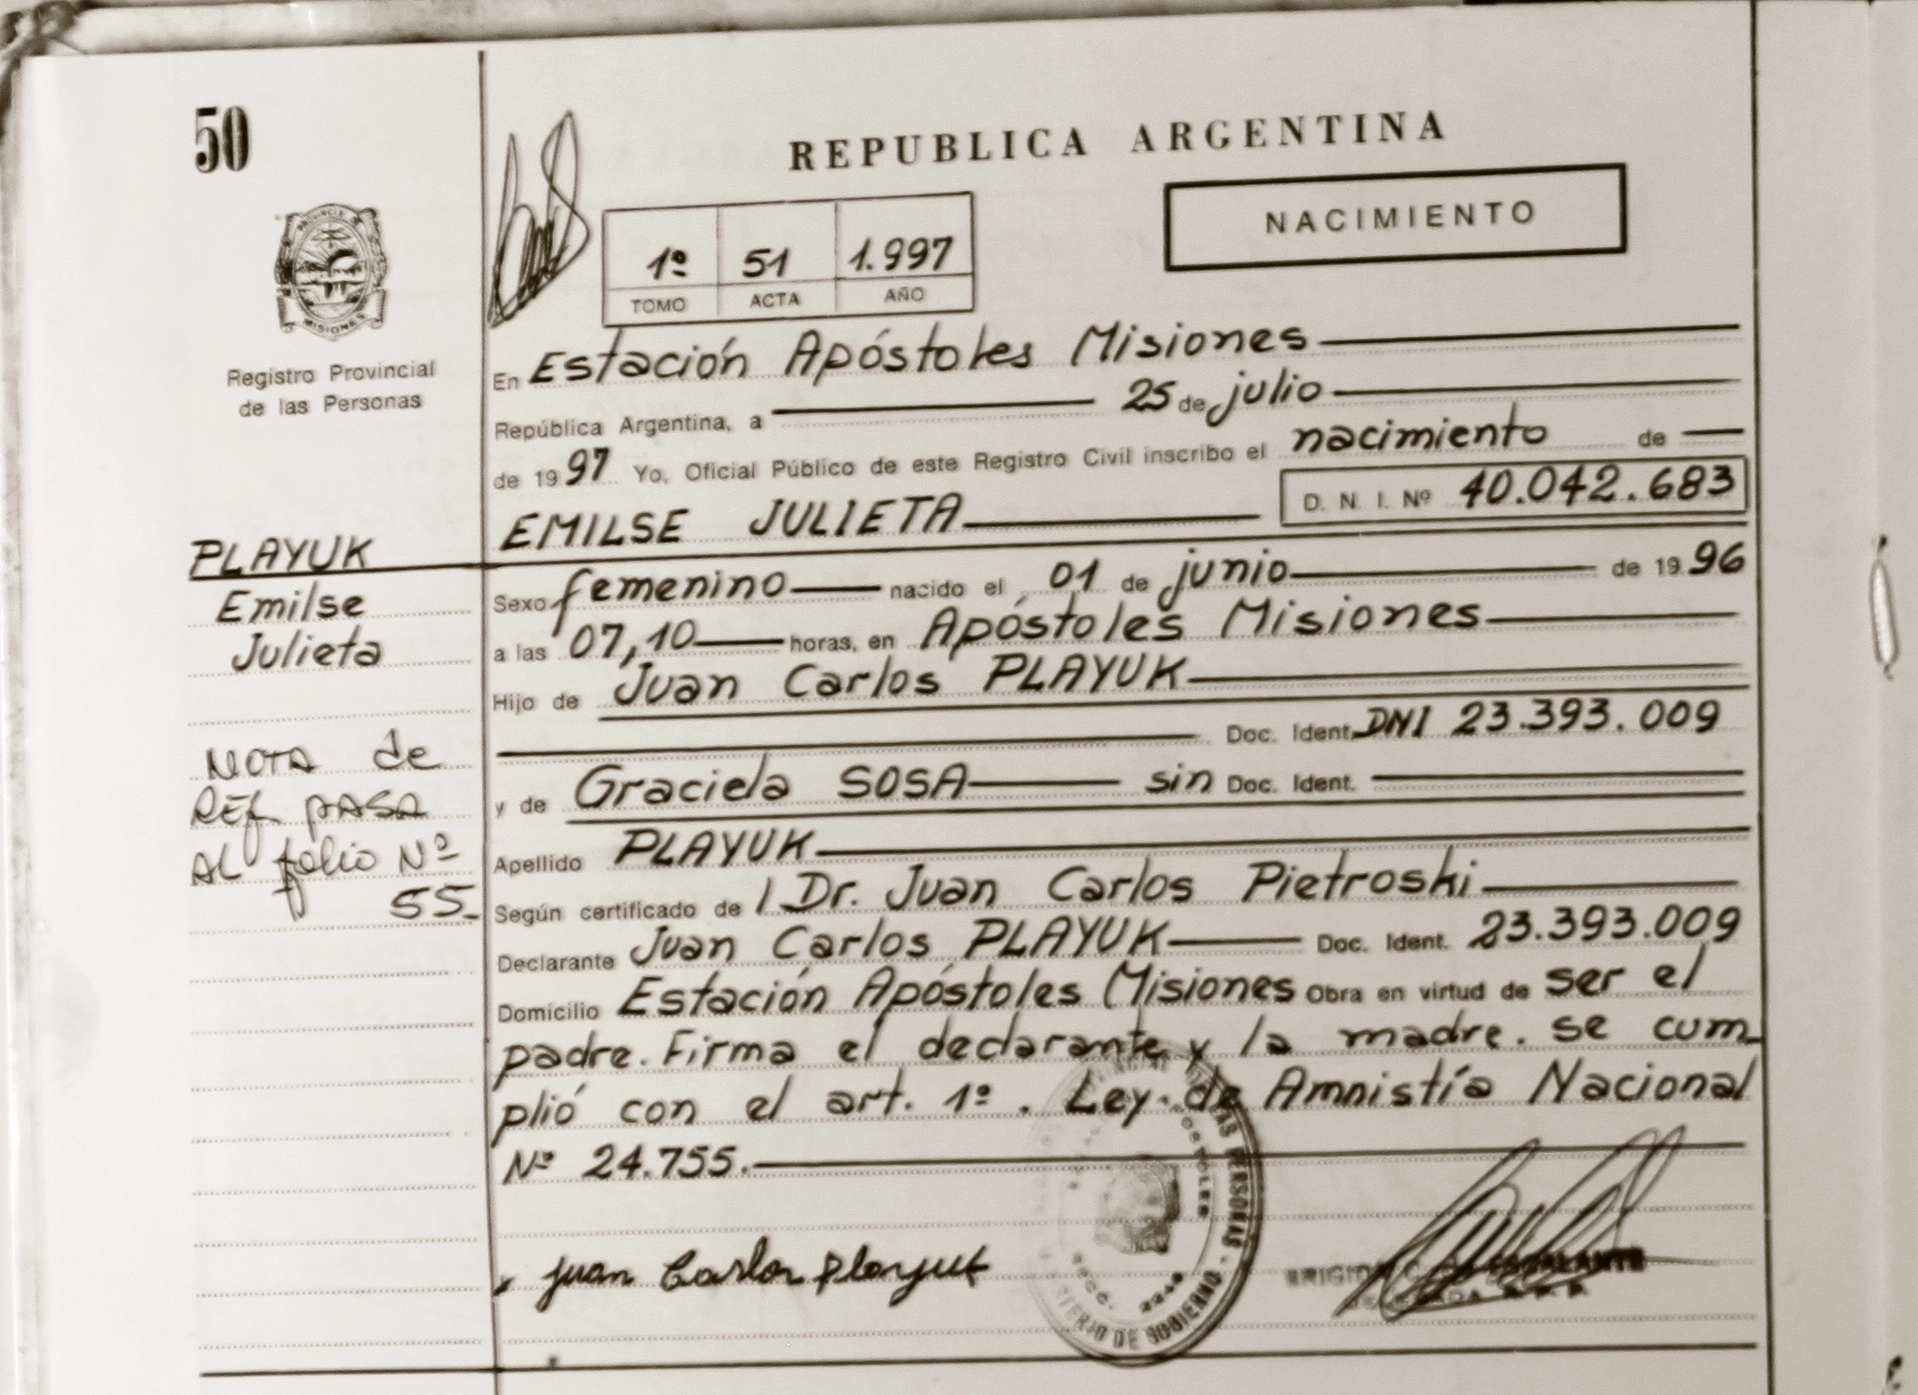 50
REPUBLICA ARGENTINA
NACIMIENTO
1º 51 1.997
TOMO ACTA AÑO
PROVINCIA DE
MISIONES
Registro Provincial
de las Personas
En Estación Apóstoles Misiones
República Argentina, a 25 de julio
de 1997 Yo, Oficial Público de este Registro Civil inscribo el nacimiento de
D. N. I. Nº 40.042.683
EMILSE JULIETA
PLAYUK
Emilse
Julieta
Sexo femenino nacido el 01 de junio de 1996
a las 07,10 horas, en Apóstoles Misiones
Hijo de Juan Carlos PLAYUK
Doc. Ident. DNI 23.393.009
y de Graciela SOSA sin Doc. Ident.
NOTA de
REf. pASA
AL folio Nº
55.
Apellido PLAYUK
Según certificado de l Dr. Juan Carlos Pietroski
Declarante Juan Carlos PLAYUK Doc. Ident. 23.393.009
Domicilio Estación Apóstoles Misiones Obra en virtud de ser el
padre. Firma el declarante y la madre. se cum
plió con el art. 1º. Ley de Amnistía Nacional
Nº 24.755.
Juan Carlos Playuk
PERSONAS
DE GOBIERNO